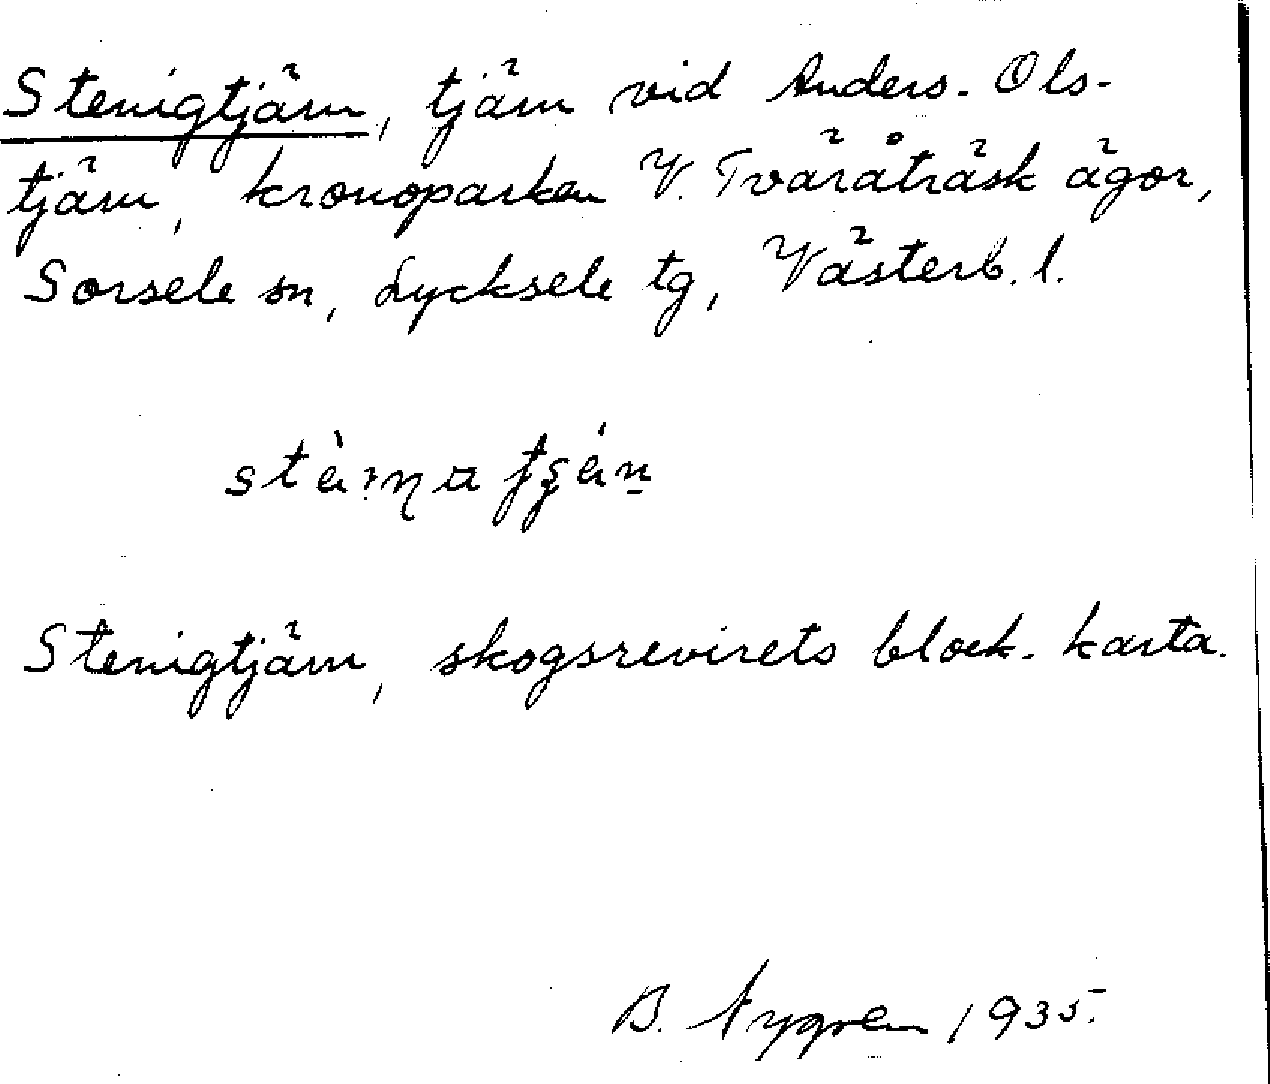 Stenigtjärn, tjärn vid Anders-Ols-
tjärn, kronoparken V. Tväråträsk ägor,
Sorsele sn, Lycksele tg, Västerb. l.
Stenigtjärn, skogsrevirets block-karta.
B. Nygren 1935.